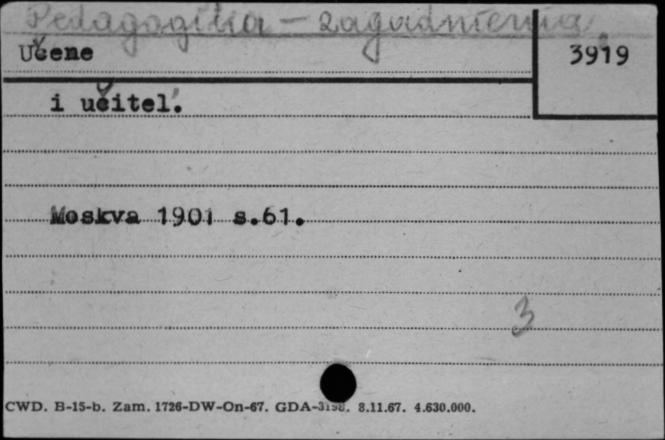 Pedagogika - zagadnienia
Učene
3919
i učitel'.
Moskva 1901 s.61.
3
CWD. B-15-b. Zam. 1726-DW-On-67. GDA-3198. 8.11.67. 4.630.000.